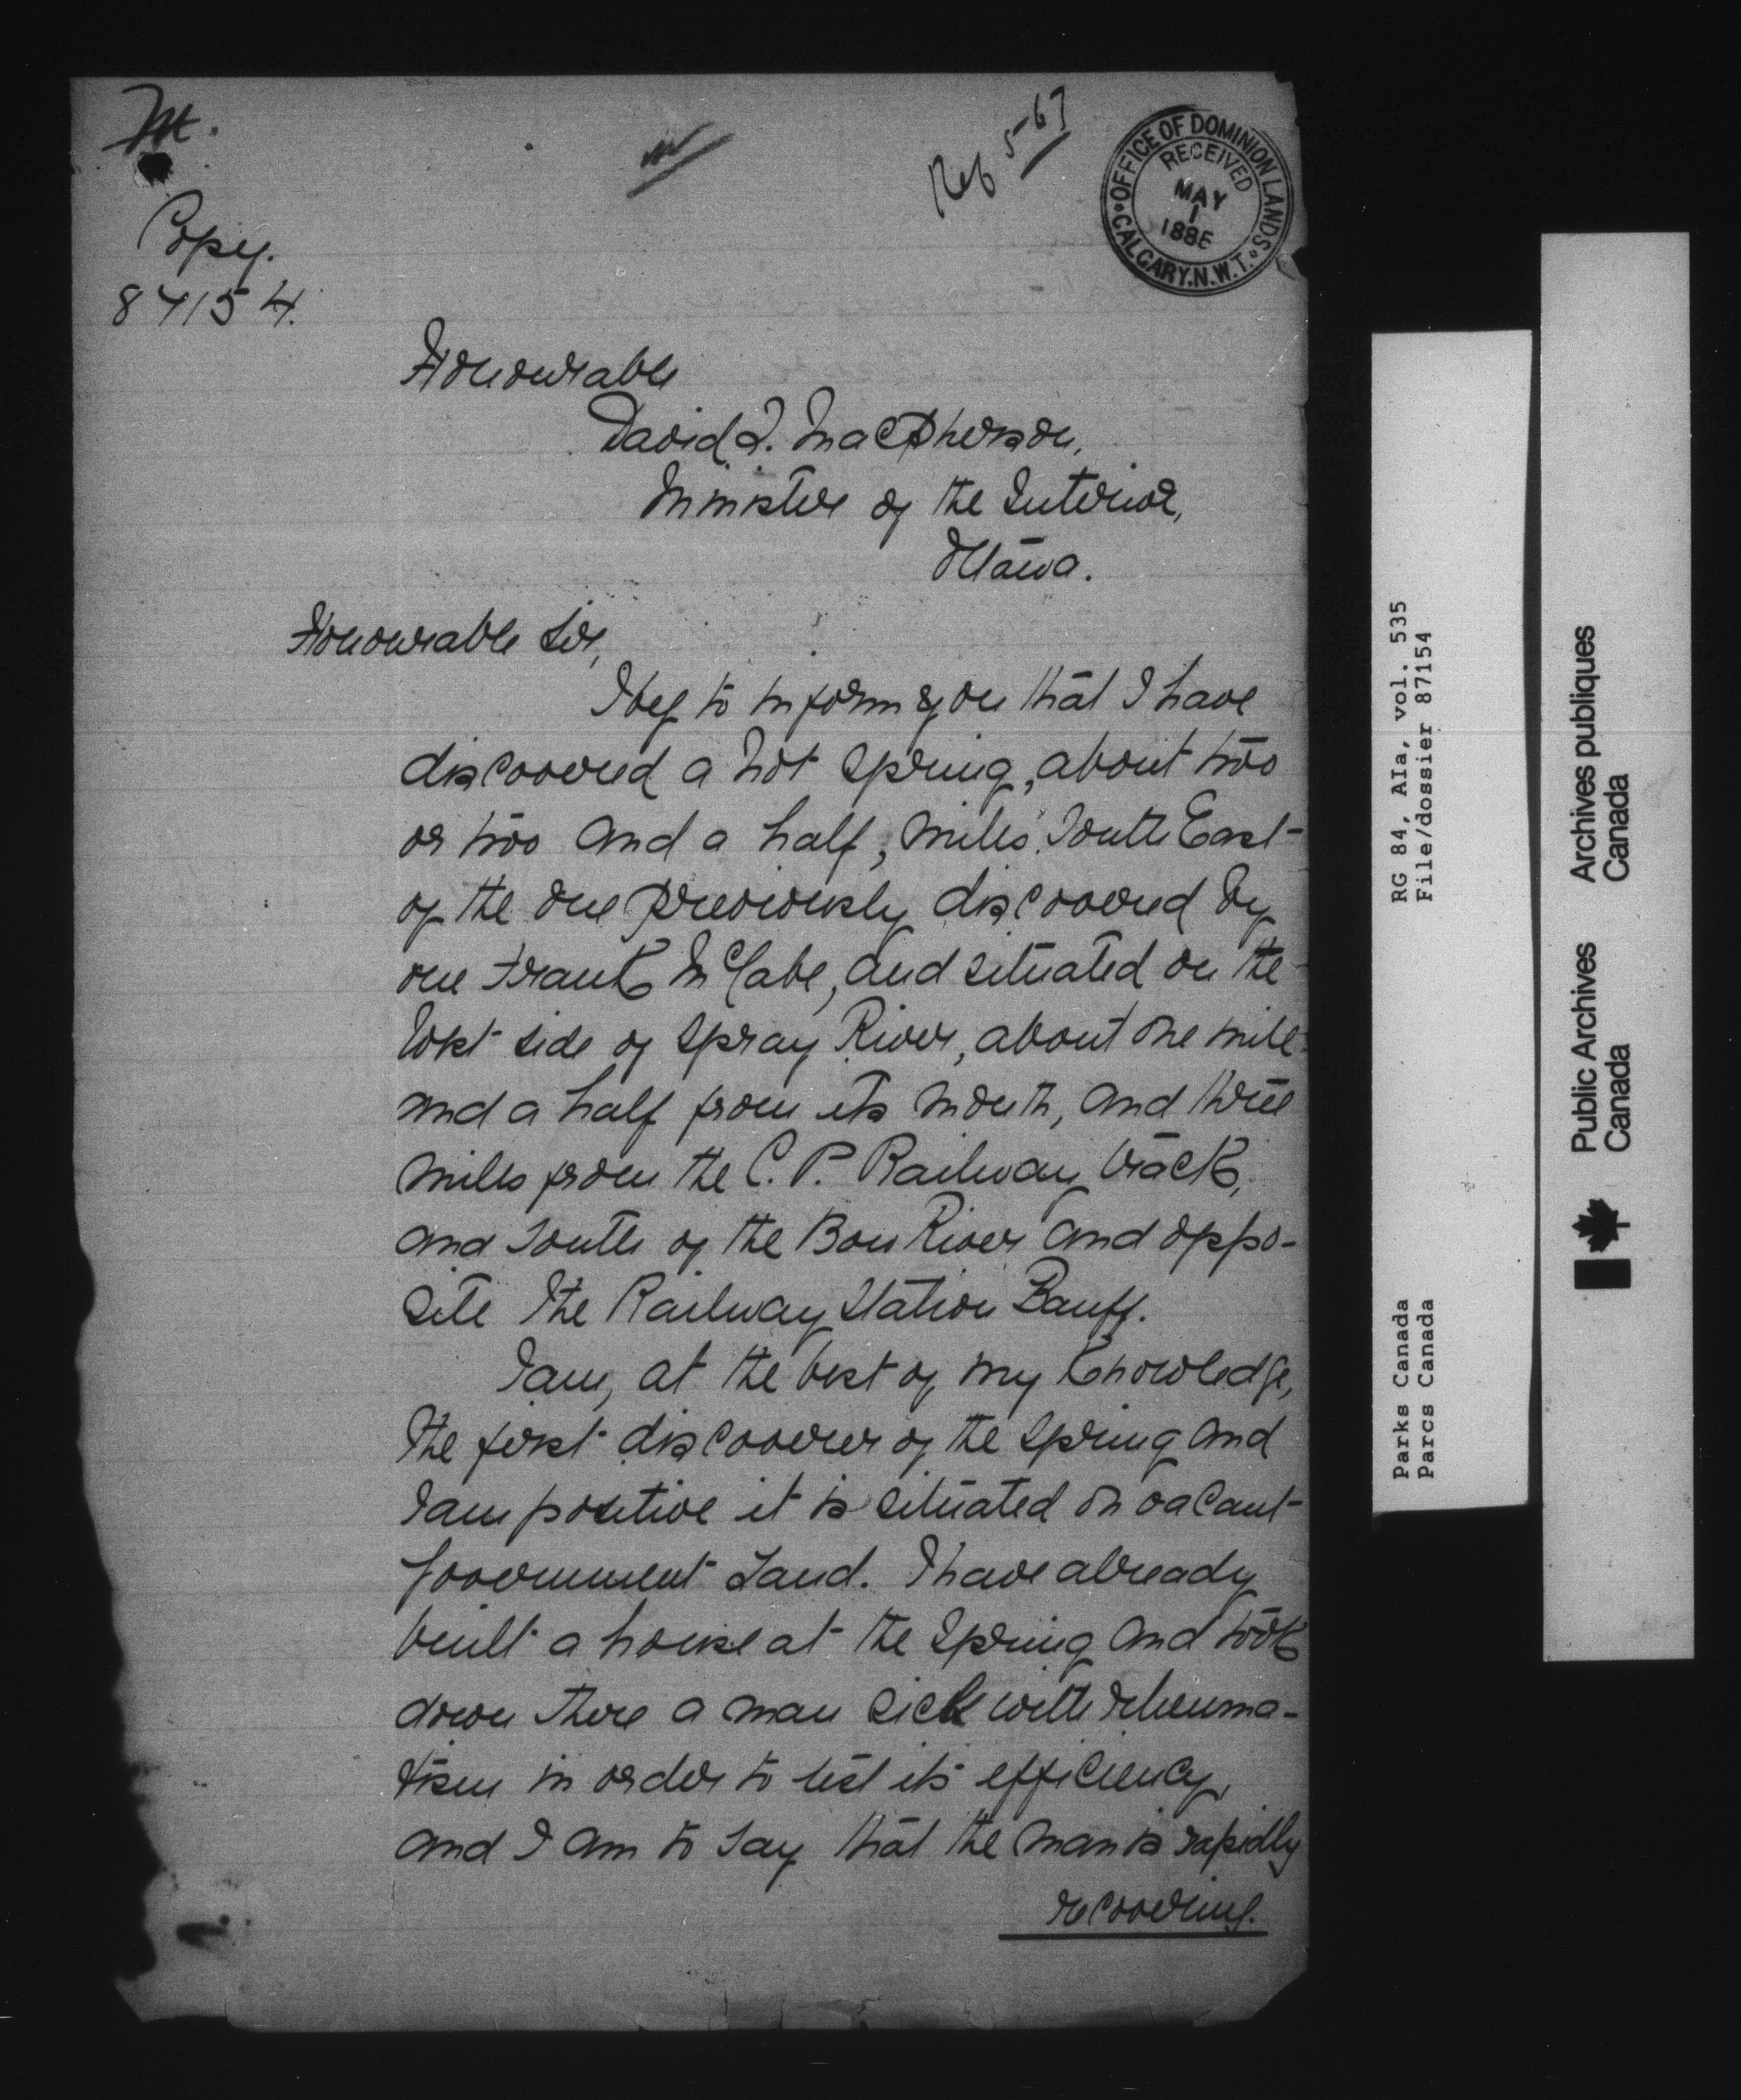 M.
Copy.
87154.
Ref 567
OFFICE OF DOMINION LANDS
RECEIVED
MAY
1
1886
CALGARY. N.W.T.
Honourable
David L. MacPherson,
Minister of the Interior,
Ottawa.
Honourable Sir,
I beg to inform you that I have
discovered a hot spring, about two
or two and a half, miles South East
of the one previously discovered by
one Frank McCabe, and situated on the
West side of Spray River, about one mile
and a half from its mouth, and three
miles from the C. P. Railway track,
and South of the Bow River and oppo-
site the Railway Station Banff.
I am, at the best of my Knowledge,
the first discoverer of the spring and
I am positive it is situated on vacant
Government Land. I have already
built a house at the Spring and took
down there a man sick with rheuma-
tism in order to test its efficiency,
and I am to say that the man is rapidly
recovering.
RG 84, AIa, vol. 535
File/dossier 87154
Parks Canada
Parcs Canada
Public Archives
Canada
Archives publiques
Canada